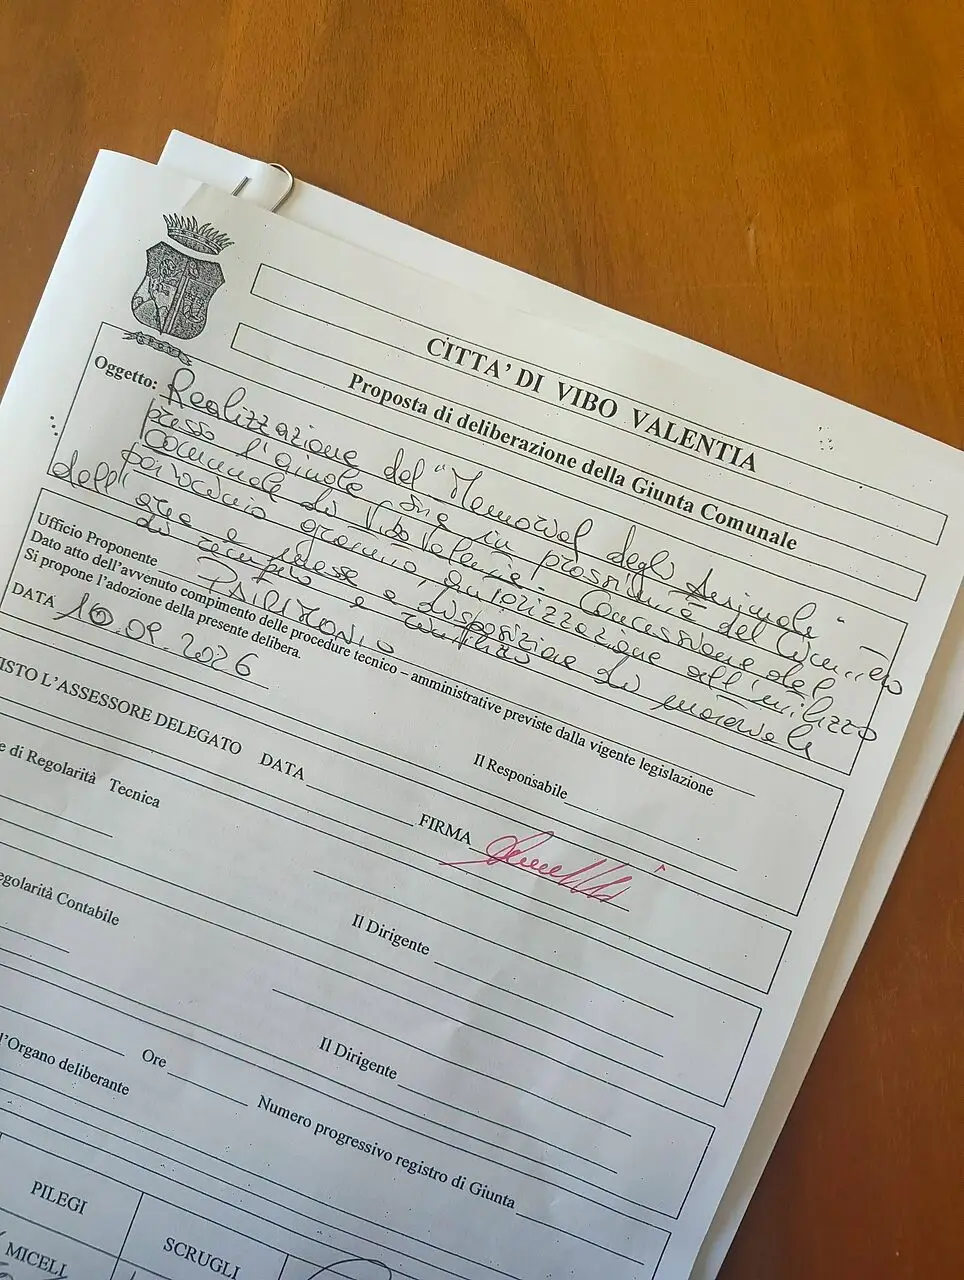 CITTA' DI VIBO VALENTIA
Proposta di deliberazione della Giunta Comunale
Oggetto: Realizzazione del "Memorial degli Animali"
presso l'aiuola sita in prossimità del Cimitero
comunale di Vibo Valentia. Concessione del
patrocinio gratuito, autorizzazione all'utilizzo
dell'area e messa a disposizione di materiale
di recupero e riutilizzo
Ufficio Proponente PATRIMONIO
Dato atto dell'avvenuto compimento delle procedure tecnico – amministrative previste dalla vigente legislazione
Si propone l'adozione della presente delibera.
DATA 10.02.2026
Il Responsabile
ISTO L'ASSESSORE DELEGATO DATA FIRMA
e di Regolarità Tecnica
Il Dirigente
egolarità Contabile
Il Dirigente
Ore
l'Organo deliberante
Numero progressivo registro di Giunta
PILEGI
SCRUGLI
MICELI